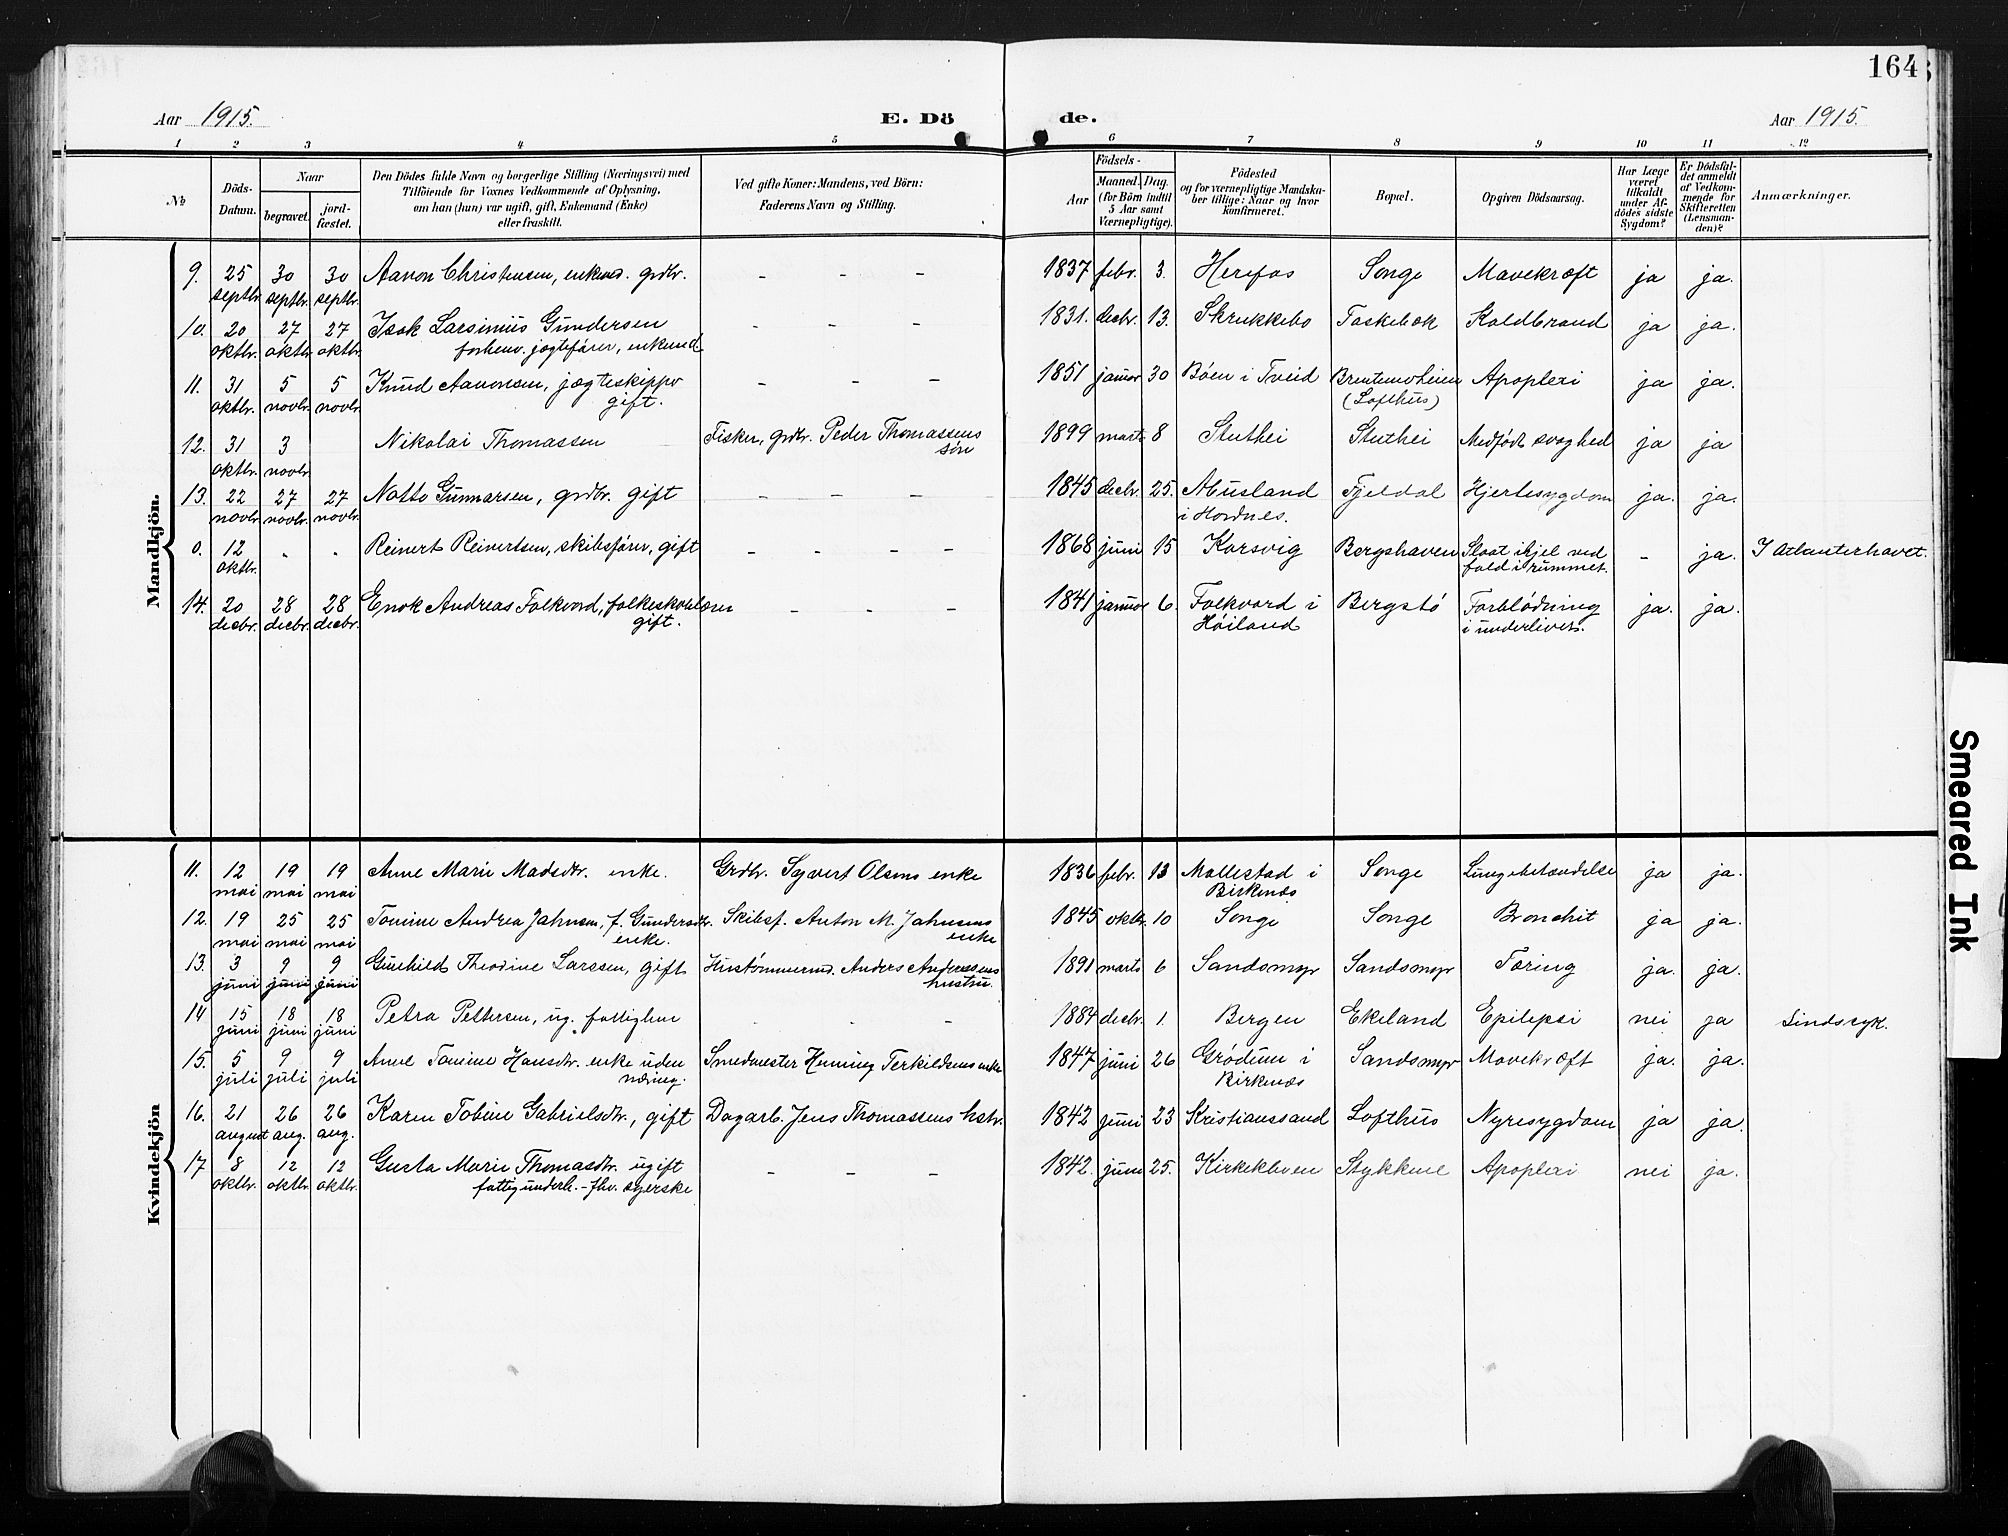 164
Aar 1915.
E. Dö
de.
Aar 1915.
1 2 3 4 5 6 7 8 9 10 11 12
No
Döds-Datum.
Naar
begravet.
jord-fæstet.
Den Dödes fulde Navn og borgerlige Stilling (Næringsvei) med
Tilföiende for Voxnes Vedkommende af Oplysning,
om han (hun) var ugift, gift, Enkemand (Enke)
eller fraskilt.
Ved gifte Koner: Mandens, ved Börn:
Faderens Navn og Stilling.
Födsels-
Aar
Maaned. Dag.
(for Börn indtil
5 Aar samt
Værnepligtige).
Födested
og for værnepligtige Mandska-
ber tillige: Naar og hvor
konfirmeret.
Bopæl.
Opgiven Dödsaarsag.
Har Læge
været
tilkaldt
under Af-
dödes sidste
Sygdom?
Er Dödsfal-
det anmeldt
af Vedkom-
mende for
Skifteretten
(Lensman-
den)?
Anmærkninger.
Mandkjön.
9. 25 septbr. 30 septbr. 30 septbr. Aanon Christensen, enkmd. grdbr. - - - 1837 febr. 3. Herefos Songe Mavekræft ja ja.
10. 20 oktbr. 27 oktbr. 27 oktbr. Isak Larsinius Gundersen - - - 1831. decbr. 13. Skrukkebo Taskebæk Koldbrand ja ja.
forhenv. jægtefører, enkemd
11. 31 oktbr. 5 novbr. 5 novbr. Knud Aanonsen, jægteskipper - - - 1851 januar 30 Bøen i Tveid Brentemoheien Apoplexi ja ja.
gift. (Lofthus)
12. 31 oktbr. 3 novbr. Nikolai Thomassen Fisker, grdbr. Peder Thomassens 1899 marts 8 Stuthei Stuthei Medfødt svaghed ja ja
søn
13. 22 novbr. 27 novbr. 27 novbr. Natto Gunnarsen, grdbr. gift - - - - 1845 decbr. 25. Musland Fjeldal Hjertesygdom ja. ja.
i Hordnes.
0. 12 oktbr. " " Reinert Reinertsen, skibsfører, gift - - - - 1868 juni 15 Korsvig Bergshaven Slaat ihjel ved - ja. I Atlanterhavet.
fald i rummet.
14. 20 decbr. 28 decbr. 28 decbr. Enok Andreas Folkvord, folkeskolelærer - - - 1841 januar 6. Folkvord i Bergstø Forblødning ja. ja.
gift. Høiland i underlivet.
Kvindekjön
11. 12 mai 19 mai 19 mai Anne Marie Madsdtr. enke. Grdbr. Syvert Olsens enke 1836 febr. 13 Mollestad i Songe Lungebetændelse ja ja.
Birkenæs
12. 19 mai 25 mai 25 mai Tomine Andrea Jahnsen, f. Gundersdtr. Skibsf. Anton M. Jahnsens 1845 oktbr. 10 Songe Songe Bronchit ja ja.
enke. enke
13. 3 juni 9 juni 9 juni Gunhild Theodine Larssen, gift Hustømmermd. Anders Andreassens 1891 marts 6 Sandsmyr Sandsmyr Tæring ja. ja.
hustru.
14 15 juni 18 juni 18 juni Petra Pettersen, ug. fattiglem - - - 1884 decbr. 1. Bergen Ekeland Epilepsi nei ja Sindssyk.
15. 5 juli 9 juli 9 juli Anne Tomine Hansdtr. enke uden Smedmester Henning Terkildsens enke 1847 juni 26 Grødum i Sandsmyr Mavekræft ja. ja.
næring. Birkenæs
16. 21 august 26 aug. 26 aug. Karen Tobine Gabrielsdtr., gift Dagarb. Jens Thomassens hstr. 1842 juni 23 Kristianssand Lofthus Nyresygdom ja ja.
17 8 oktbr. 12 oktbr. 12 oktbr. Gusta Marie Thomasdtr. ugift - - - 1842. juni 25. Kirkekleven Stykkene Apoplexi nei ja.
fattigunderh. - fhv. syerske
Smeared Ink